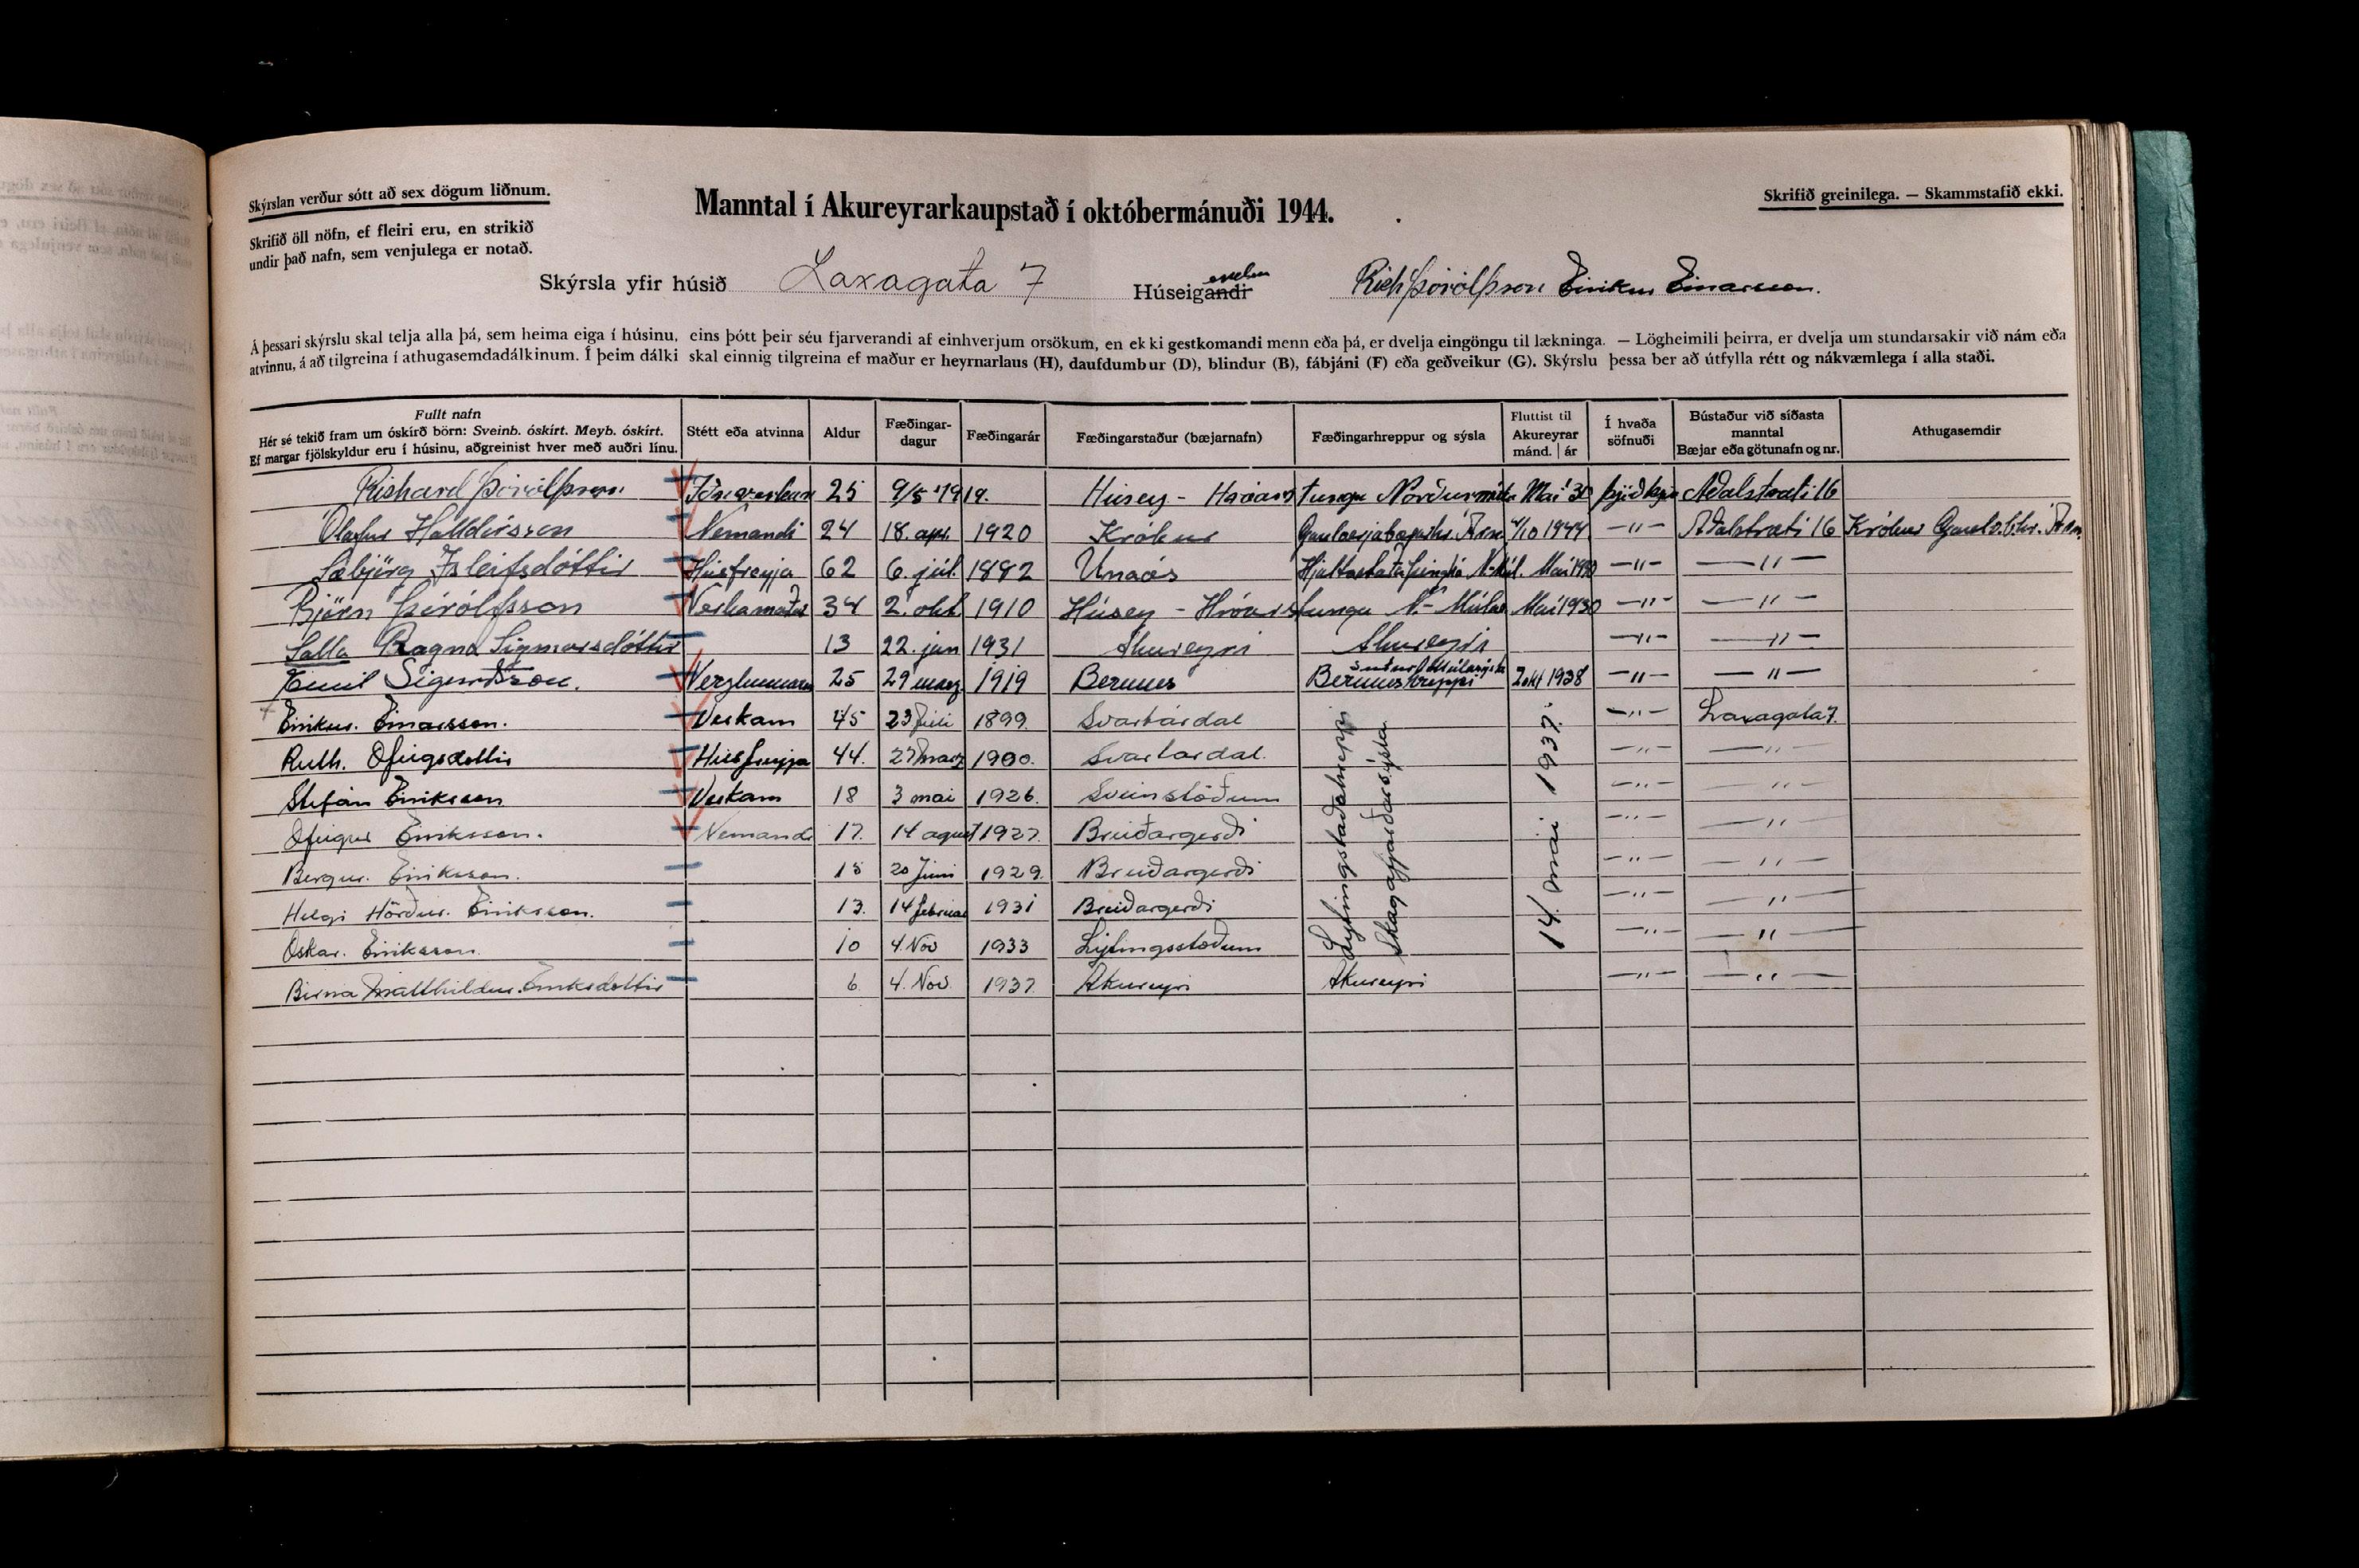 Skýrslan verður sótt að sex dögum liðnum.
Manntal í Akureyrarkaupstað í októbermánuði 1944.
Skrifið greinilega. — Skammstafið ekki.
Skrifið öll nöfn, ef fleiri eru, en strikið
undir það nafn, sem venjulega er notað.
Skýrsla yfir húsið Laxagata 7 Húseigandi Rich Þórólfsson Eirikur Einarsson.
Á þessari skýrslu skal telja alla þá, sem heima eiga í húsinu, eins þótt þeir séu fjarverandi af einhverjum orsökum, en ekki gestkomandi menn eða þá, er dvelja eingöngu til lækninga. — Lögheimili þeirra, er dvelja um stundarsakir við nám eða
atvinnu, á að tilgreina í athugasemdadálkinum. Í þeim dálki skal einnig tilgreina ef maður er heyrnarlaus (H), daufdumbur (D), blindur (B), fábjáni (F) eða geðveikur (G). Skýrslu þessa ber að útfylla rétt og nákvæmlega í alla staði.
Fullt nafn
Hér sé tekið fram um óskírð börn: Sveinb. óskírt. Meyb. óskírt.
Ef margar fjölskyldur eru í húsinu, aðgreinist hver með auðri línu.
Stétt eða atvinna
Aldur
Fæðingar-
dagur
Fæðingarár
Fæðingarstaður (bæjarnafn)
Fæðingarhreppur og sýsla
Fluttist til
Akureyrar
mánd. | ár
Í hvaða
söfnuði
Bústaður við síðasta
manntal
Bæjar eða götunafn og nr.
Athugasemdir
Richard Þórólfsson 25 9/5 1919. Húsey - Hróarstungu Norðurmúla Maí '30 Þjóðkirkja Aðalstræti 16
Ólafur Halldórsson Nemandi 24 18. apr. 1920 Krókur 1/10 1944 —"— Aðalstræti 16 Krókur
Sæbjörg Ísleifsdóttir Húsfreyja 62 6. júl. 1882 Unaós Hjaltastaðaþinghá N-Múl. Maí 1930 —"— —"—
Björn Þórólfsson Verkamaður 34 2. okt 1910 Húsey - Hróarstungu N.- Múla Maí 1930 —"— —"—
Salla Ragna Sigmarsdóttir 13 22. jan 1931 Akureyri Akureyri —"— —"—
Emil Sigurðsson. Verzlunarm 25 29 marz 1919 Berunes Berunes hreppi Suður Múlasýsla 2 okt 1938 —"— —"—
Eirikur. Einarsson. Verkam 45 23 Júli 1899. Svartárdal —"— Laxagata 7.
Ruth. Ófeigsdottir Húsfreyja 44. 27 marz 1900. Svartardal. —"— —"—
Stefán Eiriksson Verkam 18 3 mai 1926. Sveinstöðum —"— —"—
Ófeigur Eiriksson. Nemandi 17. 14 agust 1927. Breiðargerði —"— —"—
Bergur. Eiriksson. 15 20 Júni 1929. Breiðargerði —"— —"—
Helgi Hörður. Eiriksson. 13. 14 februar 1931 Breiðargerði —"— —"—
Oskar. Eiriksson. 10 4 Nov 1933 Lýtingsstöðum —"— —"—
Birna Matthildur. Eiriksdottir 6 4. Nov. 1937. Akureyri Akureyri —"— —"—
Lýtingsstaðahreppi
Skagafjarðarsýsla
14. mai 1937.